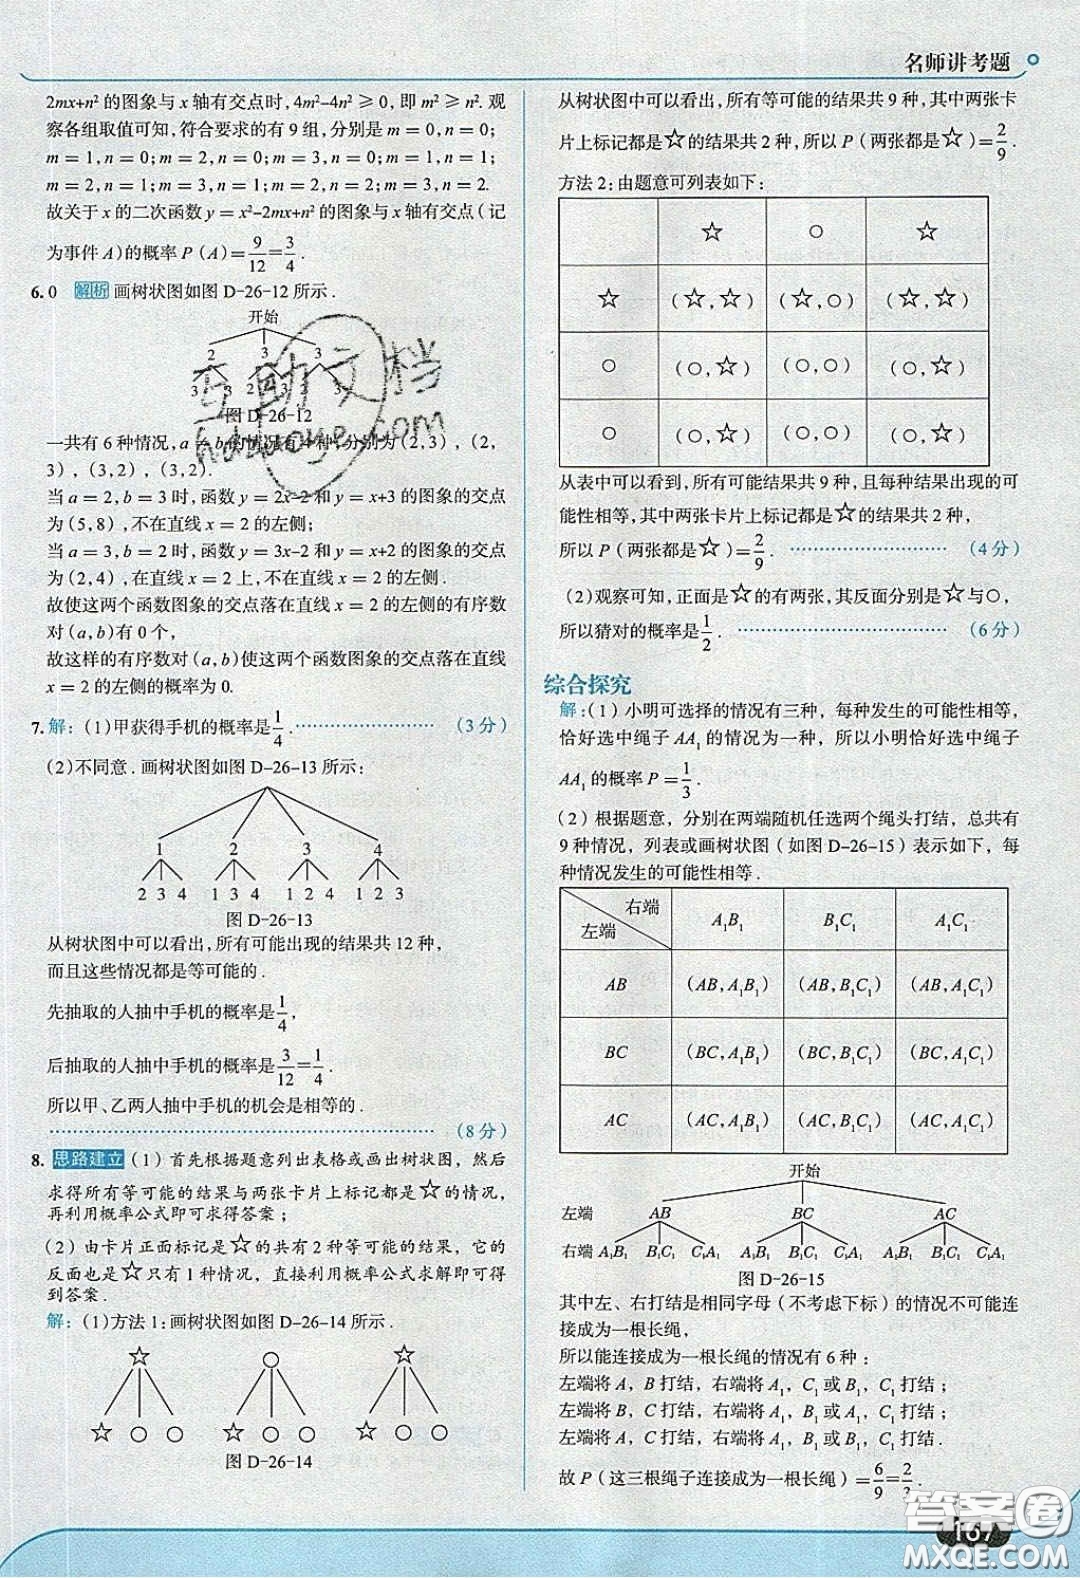 名师讲考题
2mx+n² 的图象与 x 轴有交点时,4m²-4n² ≥ 0,即 m² ≥ n². 观
察各组取值可知,符合要求的有 9 组,分别是 m = 0, n = 0;
m = 1, n = 0; m = 2, n = 0; m = 3, n = 0; m = 1, n = 1;
m = 2, n = 1; m = 3, n = 1; m = 2, n = 2; m = 3, n = 2.
故关于 x 的二次函数 y = x²-2mx+n² 的图象与 x 轴有交点(记
为事件 A)的概率 P(A)=9/12=3/4.
6. 0 解析 画树状图如图 D-26-12 所示.
开始
2 3 3
3 3 2 3 2 3
图 D-26-12
一共有 6 种情况, a ≠ b 的情况有 4 种,分别为(2,3),(2,
3),(3,2),(3,2).
当 a = 2, b = 3 时,函数 y = 2x-2 和 y = x+3 的图象的交点
为(5,8),不在直线 x = 2 的左侧;
当 a = 3, b = 2 时,函数 y = 3x-2 和 y = x+2 的图象的交点
为(2,4),在直线 x = 2 上,不在直线 x = 2 的左侧.
故使这两个函数图象的交点落在直线 x = 2 的左侧的有序数
对(a,b)有 0 个,
故这样的有序数对(a,b)使这两个函数图象的交点落在直线
x = 2 的左侧的概率为 0.
7. 解:(1)甲获得手机的概率是1/4. (3 分)
(2)不同意.画树状图如图 D-26-13 所示:
1 2 3 4
2 3 4 1 3 4 1 2 4 1 2 3
图 D-26-13
从树状图中可以看出,所有可能出现的结果共 12 种,
而且这些情况都是等可能的.
先抽取的人抽中手机的概率是1/4,
后抽取的人抽中手机的概率是3/12=1/4.
所以甲、乙两人抽中手机的机会是相等的.
(8 分)
8. 思路建立 (1)首先根据题意列出表格或画出树状图,然后
求得所有等可能的结果与两张卡片上标记都是☆的情况,
再利用概率公式即可求得答案;
(2)由卡片正面标记是☆的共有 2 种等可能的结果,它的
反面也是☆只有 1 种情况,直接利用概率公式求解即可得
到答案.
解:(1)方法 1:画树状图如图 D-26-14 所示.
☆ ○ ☆
☆ ○ ○ ☆ ○ ○ ☆ ○ ○
图 D-26-14
从树状图中可以看出,所有等可能的结果共 9 种,其中两张卡
片上标记都是☆的结果共 2 种,所以 P(两张都是☆)=2/9.
方法 2:由题意可列表如下:
☆ ○ ☆
☆ (☆,☆) (☆,○) (☆,☆)
○ (○,☆) (○,○) (○,☆)
○ (○,☆) (○,○) (○,☆)
从表中可以看到,所有可能结果共 9 种,且每种结果出现的可
能性相等,其中两张卡片上标记都是☆的结果共 2 种,
所以 P(两张都是☆)=2/9. (4 分)
(2)观察可知,正面是☆的有两张,其反面分别是☆与○,
所以猜对的概率是1/2. (6 分)
综合探究
解:(1)小明可选择的情况有三种,每种发生的可能性相等,
恰好选中绳子 AA₁ 的情况为一种,所以小明恰好选中绳子
AA₁ 的概率 P=1/3.
(2)根据题意,分别在两端随机任选两个绳头打结,总共有
9 种情况,列表或画树状图(如图 D-26-15)表示如下,每
种情况发生的可能性相等.
右端
左端 A₁B₁ B₁C₁ A₁C₁
AB (AB,A₁B₁) (AB,B₁C₁) (AB,A₁C₁)
BC (BC,A₁B₁) (BC,B₁C₁) (BC,A₁C₁)
AC (AC,A₁B₁) (AC,B₁C₁) (AC,A₁C₁)
开始
左端 AB BC AC
右端 A₁B₁ B₁C₁ C₁A₁ A₁B₁ B₁C₁ C₁A₁ A₁B₁ B₁C₁ C₁A₁
图 D-26-15
其中左、右打结是相同字母(不考虑下标)的情况不可能
连接成为一根长绳,
所以能连接成为一根长绳的情况有 6 种:
左端将 A,B 打结,右端将 A₁,C₁ 或 B₁,C₁ 打结;
左端将 B,C 打结,右端将 A₁,B₁ 或 A₁,C₁ 打结;
左端将 A,C 打结,右端将 A₁,B₁ 或 B₁,C₁ 打结.
故 P(这三根绳子连接成为一根长绳)=6/9=2/3.
167
答案圈
MXQE.COM
互助文档
hdzuoye.com